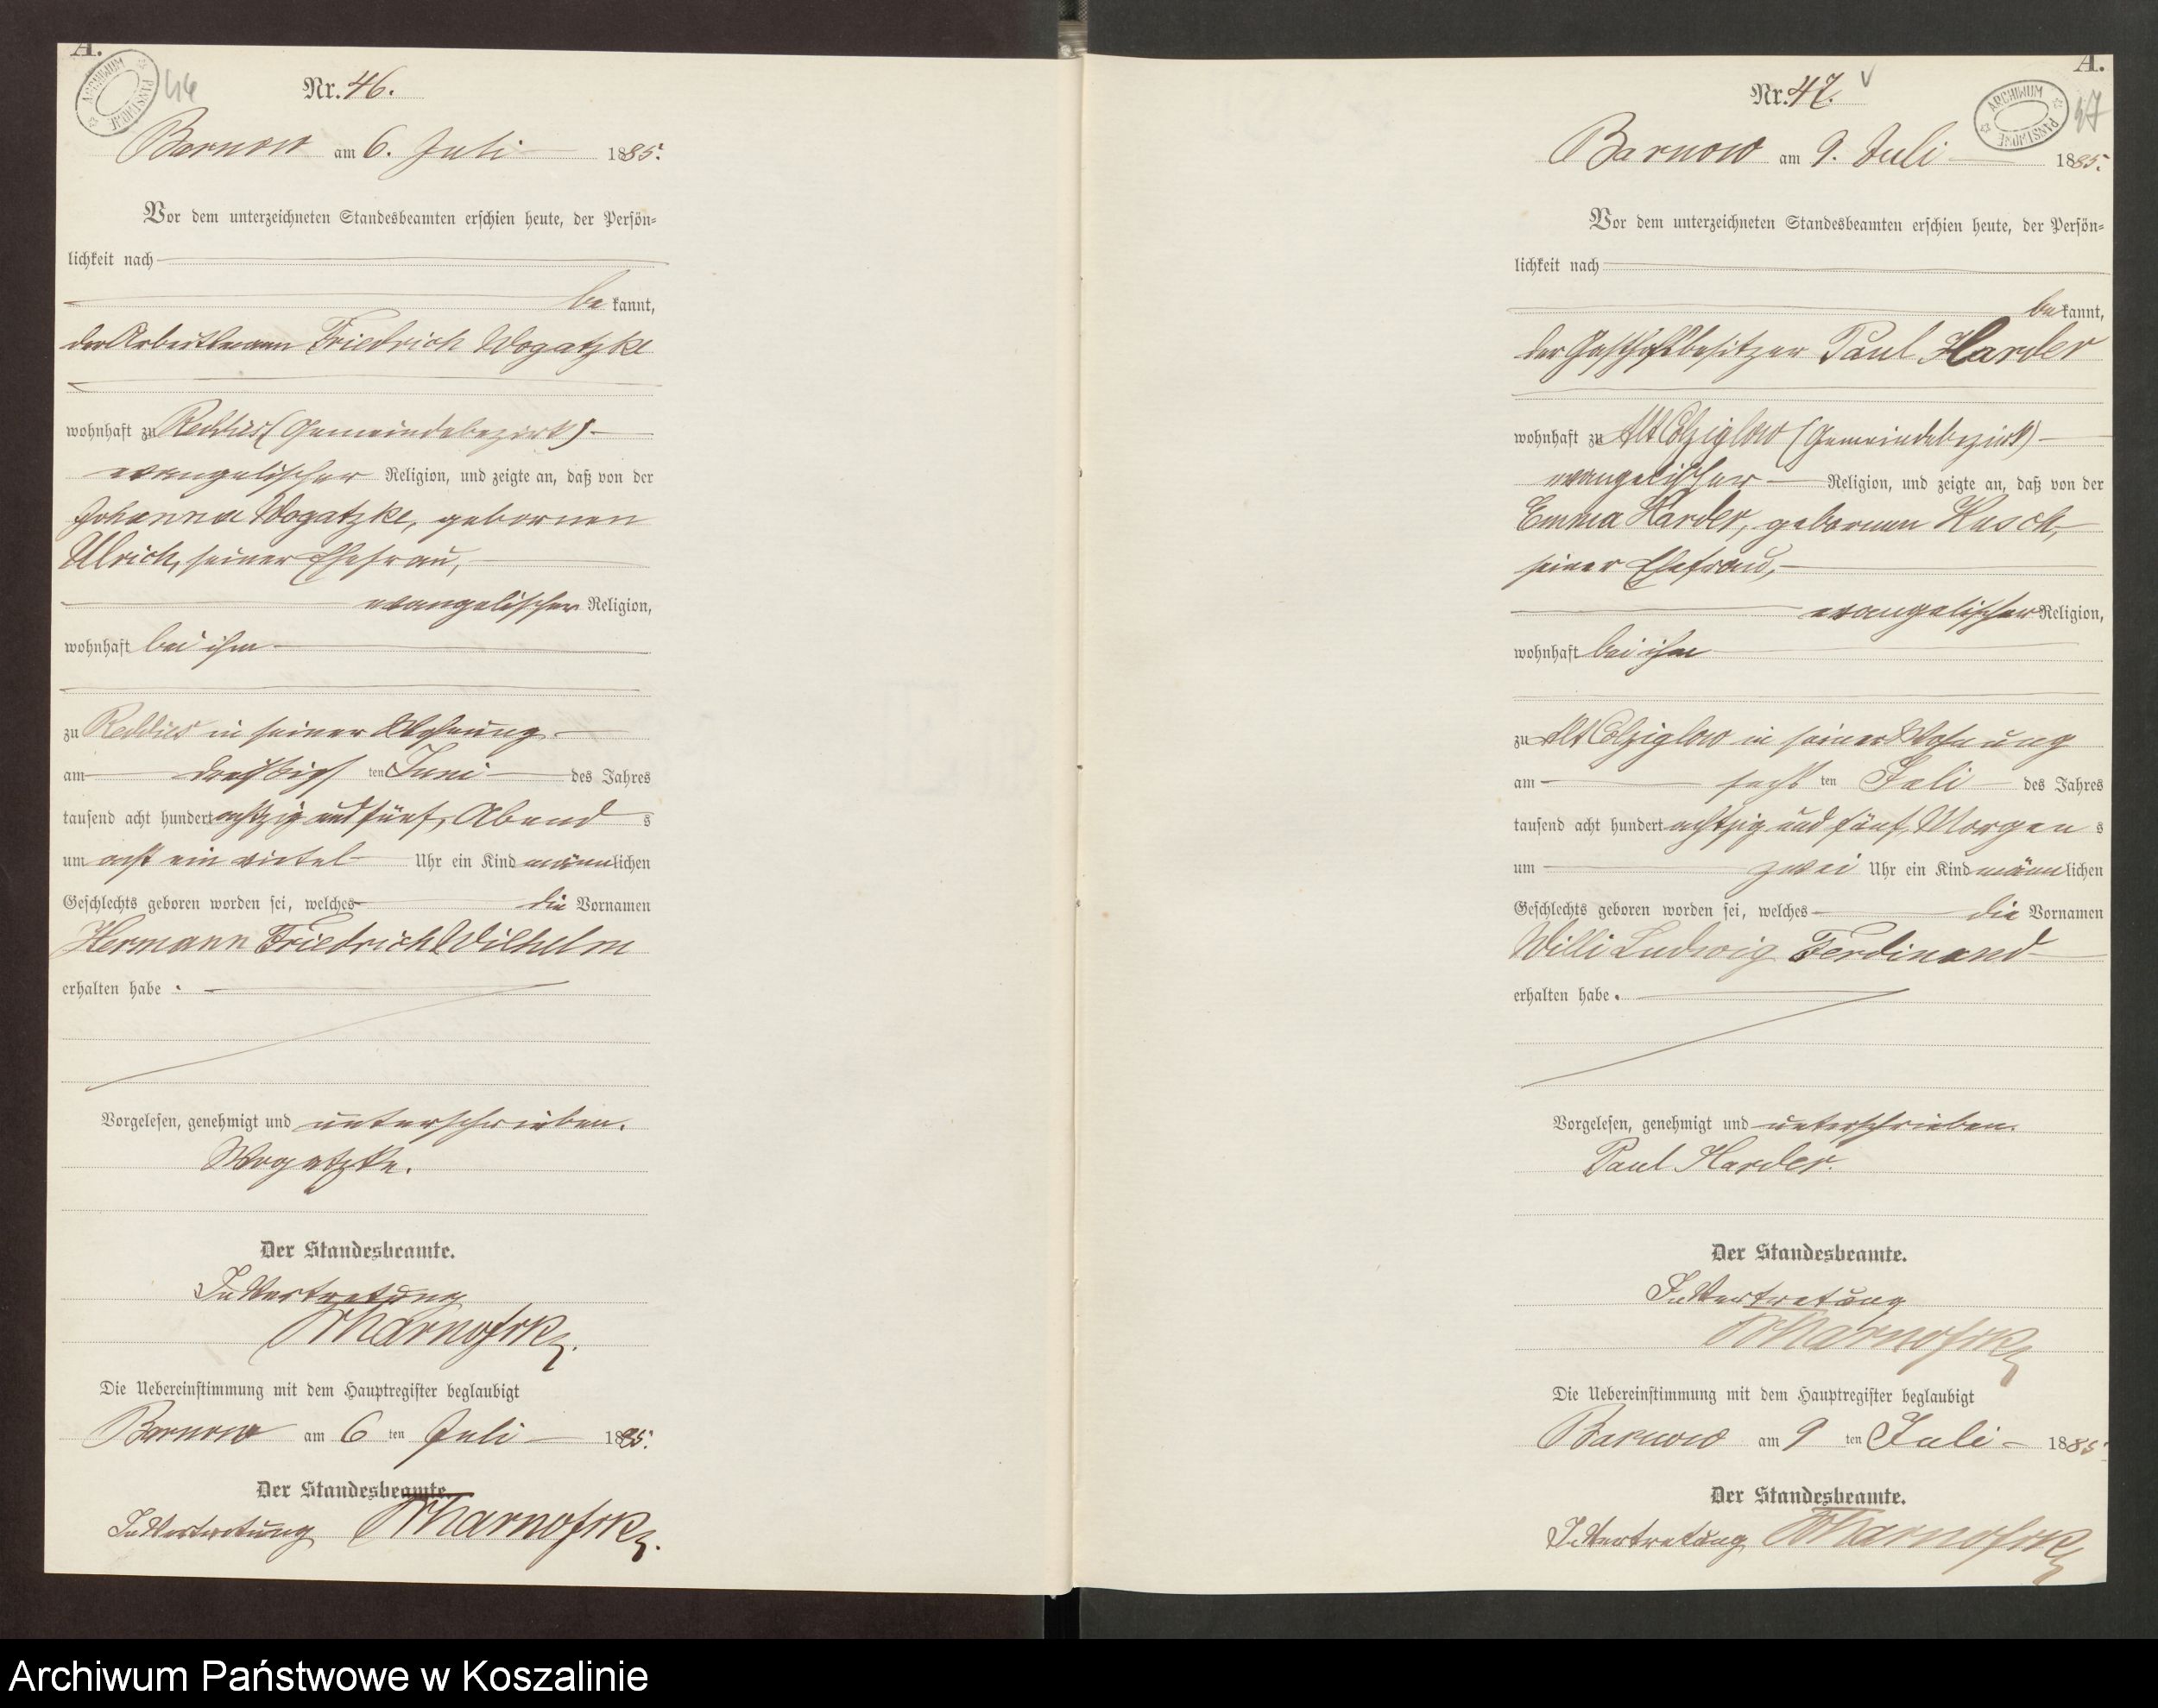 A.
ARCHIWUM PAŃSTWOWE
46
Nr. 46.
Barnow am 6. Juli 1885.
Vor dem unterzeichneten Standesbeamten erschien heute, der Persön-
lichkeit nach
be kannt,
der Arbeitsmann Friedrich Wogatzke
wohnhaft zu Reddies (Gemeindebezirk)
evangelischer Religion, und zeigte an, daß von der
Johanna Wogatzke, gebornen
Ulrich, seiner Ehefrau,
evangelischer Religion,
wohnhaft bei ihm
zu Reddies in seiner Wohnung
am dreißigsten Juni des Jahres
tausend acht hundert achtzig und fünf, Abends
um acht ein viertel Uhr ein Kind männlichen
Geschlechts geboren worden sei, welches die Vornamen
Hermann Friedrich Wilhelm
erhalten habe.
Vorgelesen, genehmigt und unterschrieben.
Wogatzke.
Der Standesbeamte.
In Vertretung
Die Uebereinstimmung mit dem Hauptregister beglaubigt
Barnow am 6 ten Juli 1885.
Der Standesbeamte.
In Vertretung
A.
ARCHIWUM PAŃSTWOWE
47
Nr. 47.
Barnow am 9. Juli 1885.
Vor dem unterzeichneten Standesbeamten erschien heute, der Persön-
lichkeit nach
be kannt,
der Gasthofbesitzer Paul Harder
wohnhaft zu Alt Colziglow (Gemeindebezirk)
evangelischer Religion, und zeigte an, daß von der
Emma Harder, gebornen Kusch,
seiner Ehefrau,
evangelischer Religion,
wohnhaft bei ihm
zu Alt Colziglow in seiner Wohnung
am sechs ten Juli des Jahres
tausend acht hundert achtzig und fünf, Morgens
um zwei Uhr ein Kind männlichen
Geschlechts geboren worden sei, welches die Vornamen
Willi Ludwig Ferdinand
erhalten habe.
Vorgelesen, genehmigt und unterschrieben.
Paul Harder.
Der Standesbeamte.
In Vertretung
Die Uebereinstimmung mit dem Hauptregister beglaubigt
Barnow am 9 ten Juli 1885
Der Standesbeamte.
In Vertretung
Archiwum Państwowe w Koszalinie